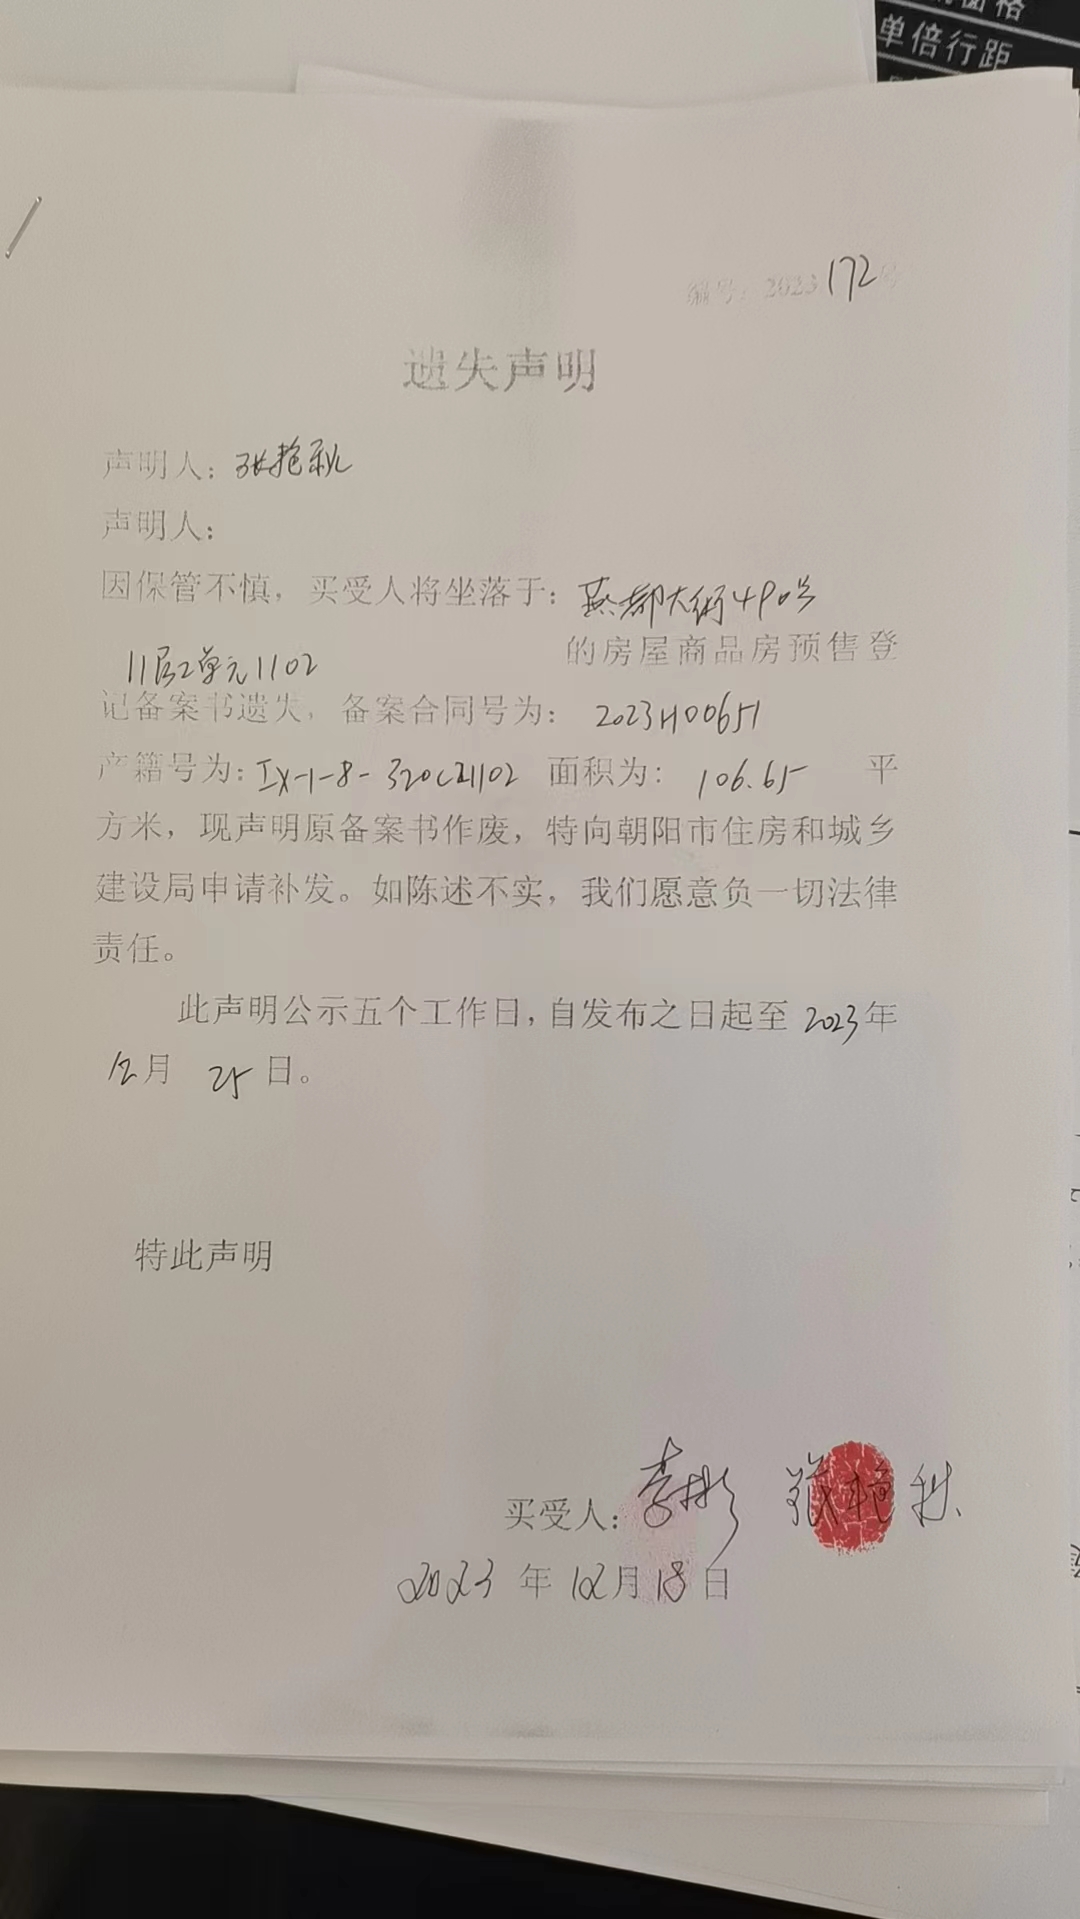 单倍行距
编号：2023 172号
遗失声明
声明人：张艳秋
声明人：
因保管不慎，买受人将坐落于：燕都大街490号
11层2单元1102 的房屋商品房预售登
记备案书遗失，备案合同号为：2023H00651
产籍号为：IX-1-8-320C21102 面积为：106.65 平
方米，现声明原备案书作废，特向朝阳市住房和城乡
建设局申请补发。如陈述不实，我们愿意负一切法律
责任。
此声明公示五个工作日，自发布之日起至 2023年
12月 25日。
特此声明
买受人：李彬 张艳秋
2023年12月18日